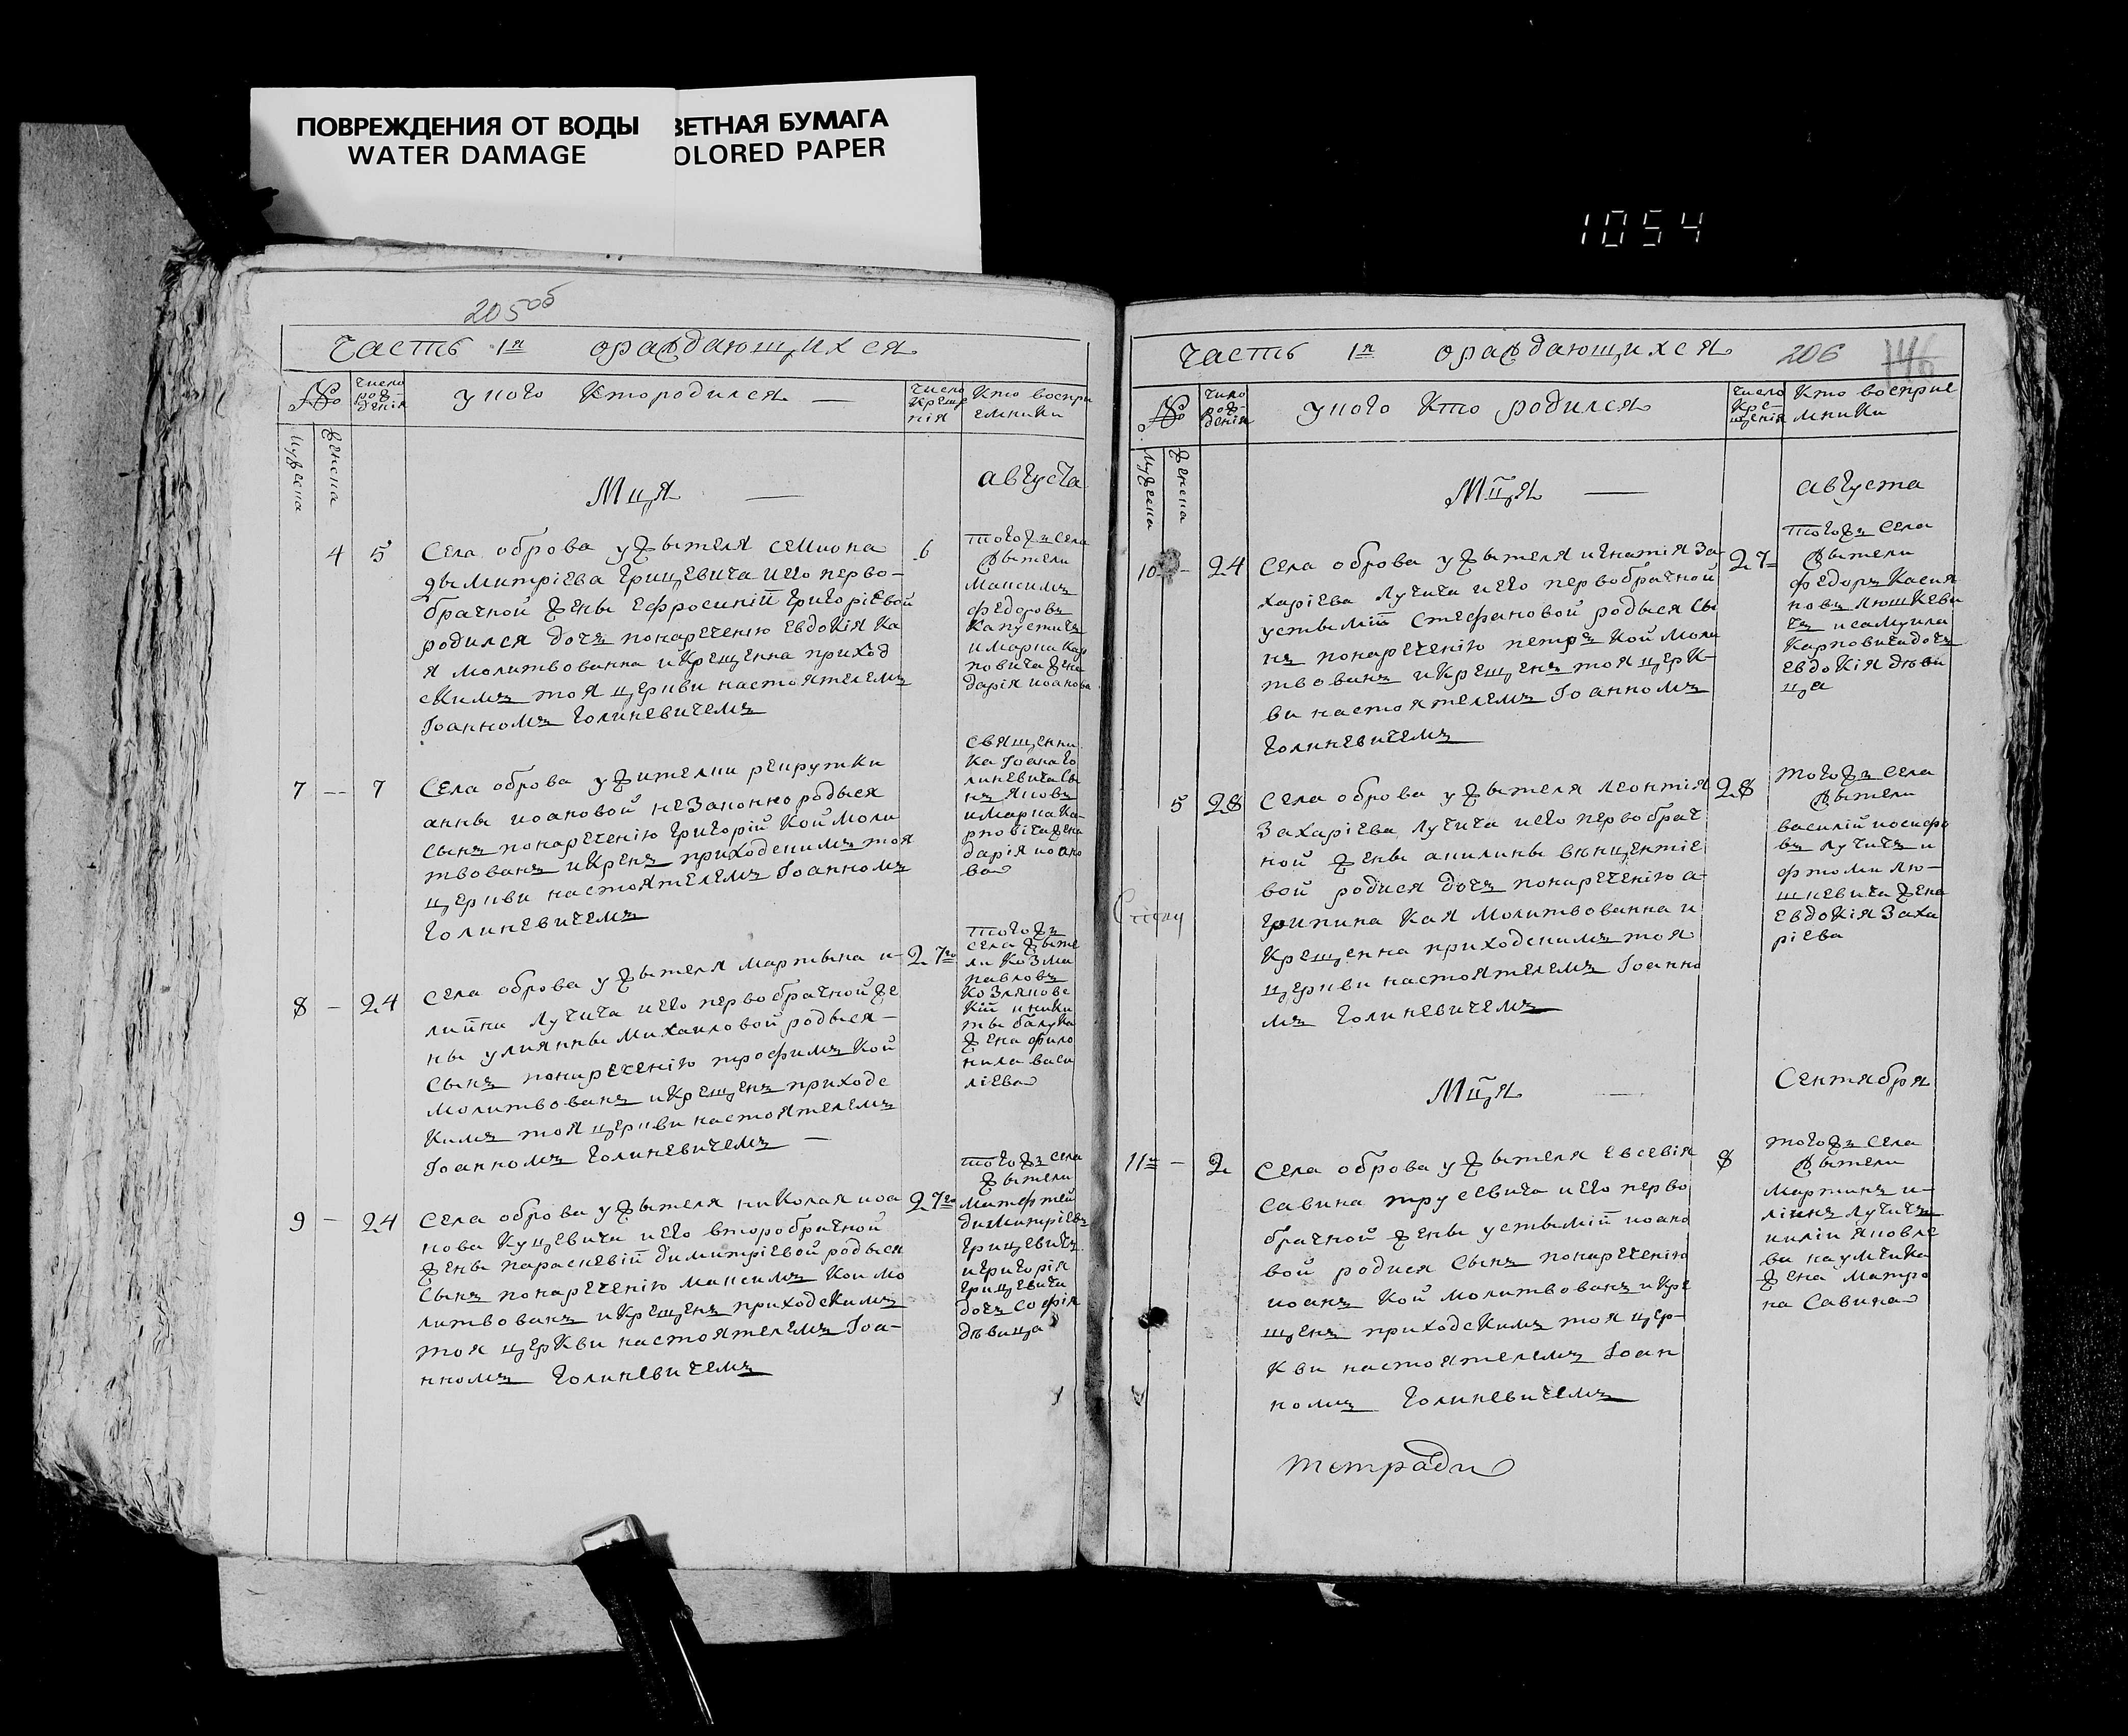 ПОВРЕЖДЕНИЯ ОТ ВОДЫ
WATER DAMAGE
ВЕТНАЯ БУМАГА
OLORED PAPER
1054
205об
Часть 1я ораждающихся
№
число рож-дения
у кого кто родился
число креще ния
Кто воспри
емники
мужеска
женска
Мця
августа
4
5
Села оброва у жытеля семиона
дымитріева Грицевича и его перво-
брачной жены ефросиній григоріевой
родился дочъ понаречению евдокія ка
я молитвованна и крещенна приход
скимъ тоя церкви настоятелемъ
Іоанномъ Голиневичемъ
6
тогожъ села
жытели
Максимъ
федоровъ
Капустичъ
и марка кар
повича жена
дарія иоанова
7
--
7
Села оброва у жителки рекрутки
анны иоановой незаконно родыся
сынъ понаречению григорій кой моли
твованъ и крещнъ приходскимъ тоя
церкви настоятелемъ Іоанномъ
Голиневичемъ
священни
ка Іоана Го
линевича сы
нъ яковъ
и марка ка-
рповича жена
дарія иоано
ва
8
-
24
села оброва у жытеля мартына и-
лийки лучича и его первобрачной же
ны улиянны михаиловой родыся-
сынъ понаречению трофимъ кой
молитвованъ и крещенъ приходс
кимъ тоя церкви настоятелемъ
Іоанномъ Голиневичемъ -
27го
тогожъ
села жыте
ли козма
павловъ
козляковс
кій и ники
ты балука
жена фило
нила васи
ліева
9
-
24
Села оброва у жытеля николая иоа
нова куцевича и его второбрачной
жены параскевій димитріевой родыся
сынъ понаречению максимъ кои мо
литвованъ и крещенъ приходскимъ
тоя церкви настоятелемъ Іоа-
нномъ Голиневичемъ
27го
тогожъ села
жытели
митофтей
димитріевъ
Грицевичъ
и григорія
Грицевича
дочъ софія
дѣвица
Часть 1я ораждающихся
206
№
число рож-дения
у кого кто родился
число кре-щения
Кто восприе
мники
мужеска
женска
Мця
августа
10
-
24
Села оброва у жытеля игнатія за-
харіева лучича и его первобрачной
устыміи стефановой родыся сы
нъ понаречению петръ кой моли
твованъ и крещенъ тоя церк-
ви настоятелемъ Іоанномъ
Голиневичемъ
27
тогожъ села
жытели
федоръ касия
новъ люшкеви
чъ и самуила
карповича дочъ
евдокія дѣви
ца
5
28
Села оброва у жытеля леонтія
захаріева лучича и его первобрач
ной жены акилины викцентіе
вой родися дочъ понаречению а-
грипина кая молитвованна и
крещенна приходскимъ тоя
церкви настоятелемъ Іоанно
мъ Голиневичемъ
28
тогожъ села
жытели
василій иосифо
въ лучичъ и
фтоми лю-
шкевича жена
евдокія заха
ріева
Мця
Сентября
11й
-
2
Села оброва у жытеля евсевія
савина трусевича и его перво
брачной жены устыміи иоано
вой родися сынъ понаречению
иоанъ кой молитвованъ и кре
щенъ приходскимъ тоя цер-
кви настоятелемъ Іоан
номъ Голиневичемъ
8
тогожъ села
жытели
мартинъ и-
лікиъ лучичъ
и иліи яковле
ви наумчика
жена матро
на савина
тетради